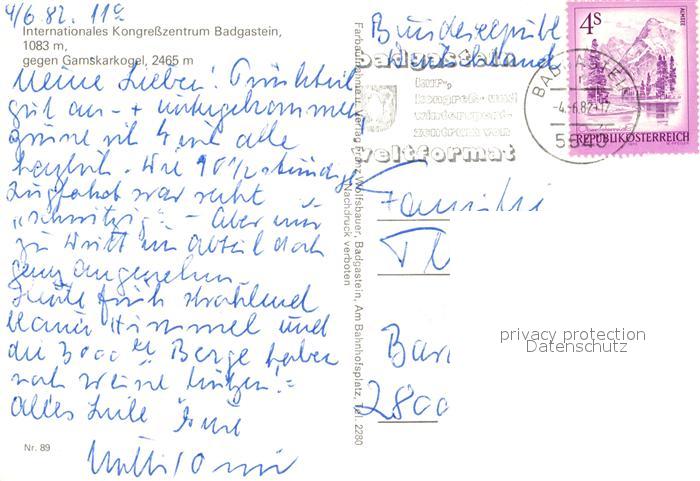 4/6.82. 11
Internationales Kongreßzentrum Badgastein,
1083 m,
gegen Gamskarkogel, 2465 m
Meine Lieben!
gut an- + untergekommen
alle
herzlich. Die 9 1/2 stündige
Zugfahrt war recht
„schwitzig" - Aber nur
zu dritt im Abteil doch
ganz angenehm.
Heute früh strahlend
blauer Himmel und
die 3000er Berge haben
noch weiße Mützen.
alles Liebe Eure
Nr. 89
Farbaufnahme u. Verlag Franz Wolfsbauer, Badgastein, Am Bahnhofsplatz, Tel. 2280
Nachdruck verboten
Bundesrepubl
Deutschland
badgastein
kur-,
kongreß- und
wintersport-
zentrum von
weltformat
BADGASTEIN
-4.-6.82-17
5640
4 S
ALMSEE
REPUBLIK ÖSTERREICH
Familie
2800
privacy protection
Datenschutz